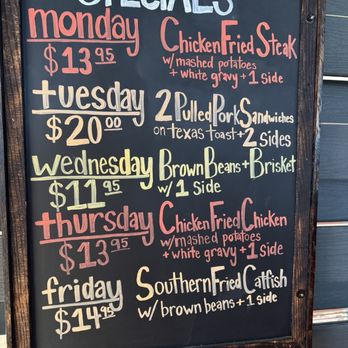 SPECIALS
monday
$13.95
Chicken Fried Steak
w/ mashed potatoes
+ white gravy + 1 side
tuesday
$20.00
2 Pulled Pork Sandwiches
on texas toast + 2 sides
wednesday
$11.95
Brown Beans + Brisket
w/ 1 side
thursday
$13.95
Chicken Fried Chicken
w/mashed potatoes
+ white gravy + 1 side
friday
$14.95
Southern Fried Catfish
w/ brown beans + 1 side